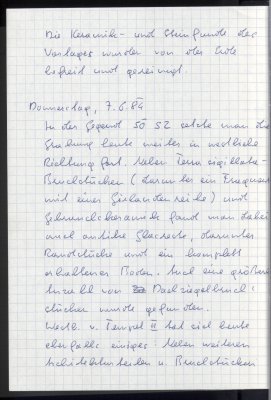 Die Keramik- und Steinfunde des
Vortages wurden von der Erde
befreit und gereinigt.
Donnerstag, 7.6.84
In der Gegend 50 52 setzte man die
Grabung heute weiter in westliche
Richtung fort. Neben Terra sigillata-
Bruchstücken (darunter ein Fragment
mit einer Girlandenreihe) und
Gebrauchskeramik fand man dabei
auch antike Glasreste, darunter
Randstücke und ein komplett
erhaltener Boden. Auch eine größere
Anzahl von Dachziegelbruch-
stücken wurde gefunden.
Westl. v. Tempel II hat sich heute
ebenfalls einiges: Neben weiteren
Architekturteilen u. Bruchstücken